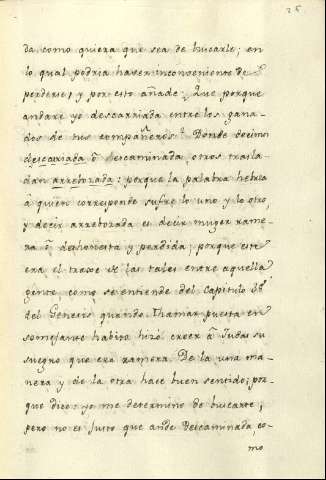 25
da como quiera que sea de buscarle; en
lo qual podria haver inconveniente de
perderse; y por esto añade: Que porque
andaré yo descarriada entre los gana-
dos de tus compañeros? Donde decimos
descarriada ō descaminada, otros trasla-
dan arrebozada: porque la palabra hebrea
â quien corresponde sufre lo uno y lo otro,
y decir arrebozada es decir muger rame-
ra ō deshonesta y perdida; porque este
era el trage de las tales entre aquella
gente, como se entiende del Capitulo 38
del Genesis quando Thamar puesta en
semejante habito hizo creer â Judas su
suegro que era ramera. De la una ma-
nera y de la otra hace buen sentido; por-
que dice: yo me determino de buscarte;
pero no es justo que ande descaminada, co-
mo